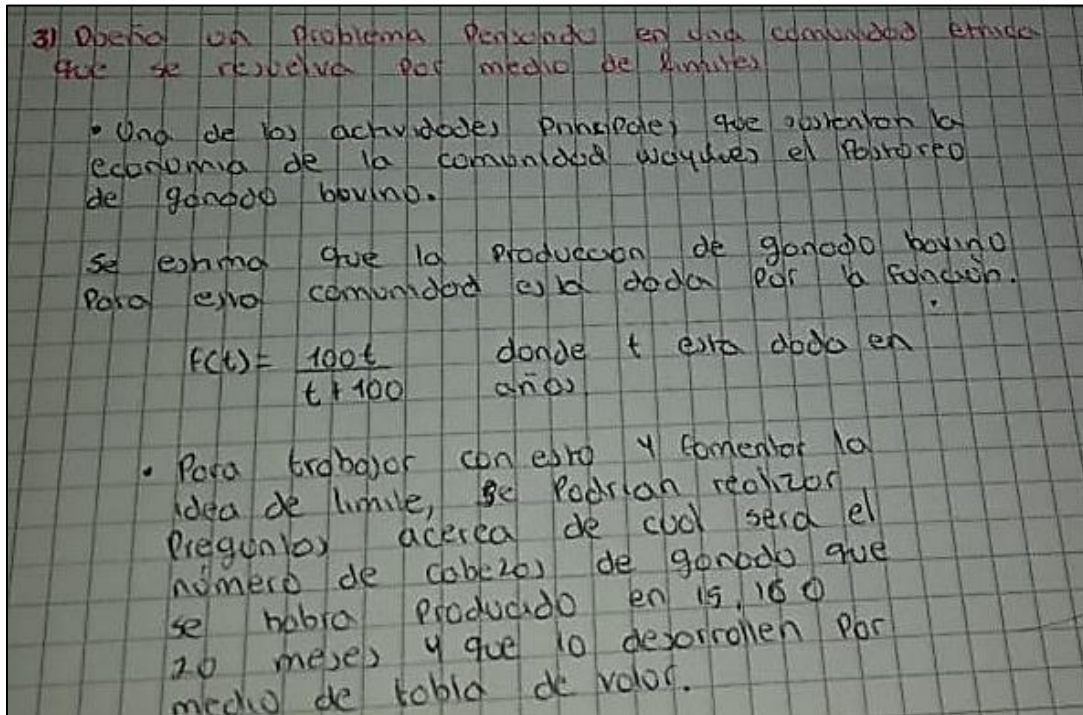 3) Diseño un problema pensando en una comunidad etnica
que se resuelva por medio de limites
• Una de las actividades principales que sustentan la
economia de la comunidad wayuu es el Pastoreo
de ganado bovino.
Se estima que la produccion de ganado bovino
Para esta comunidad esta dada por la función.
f(t) = 100t / t + 100 donde t esta dado en
años
• Para trabajar con esto y fomentar la
idea de limite, se Podrian realizar
Preguntas acerca de cual sera el
número de cabezas de ganado que
se habra producido en 15, 16 o
20 meses y que lo desarrollen por
medio de tabla de valor.